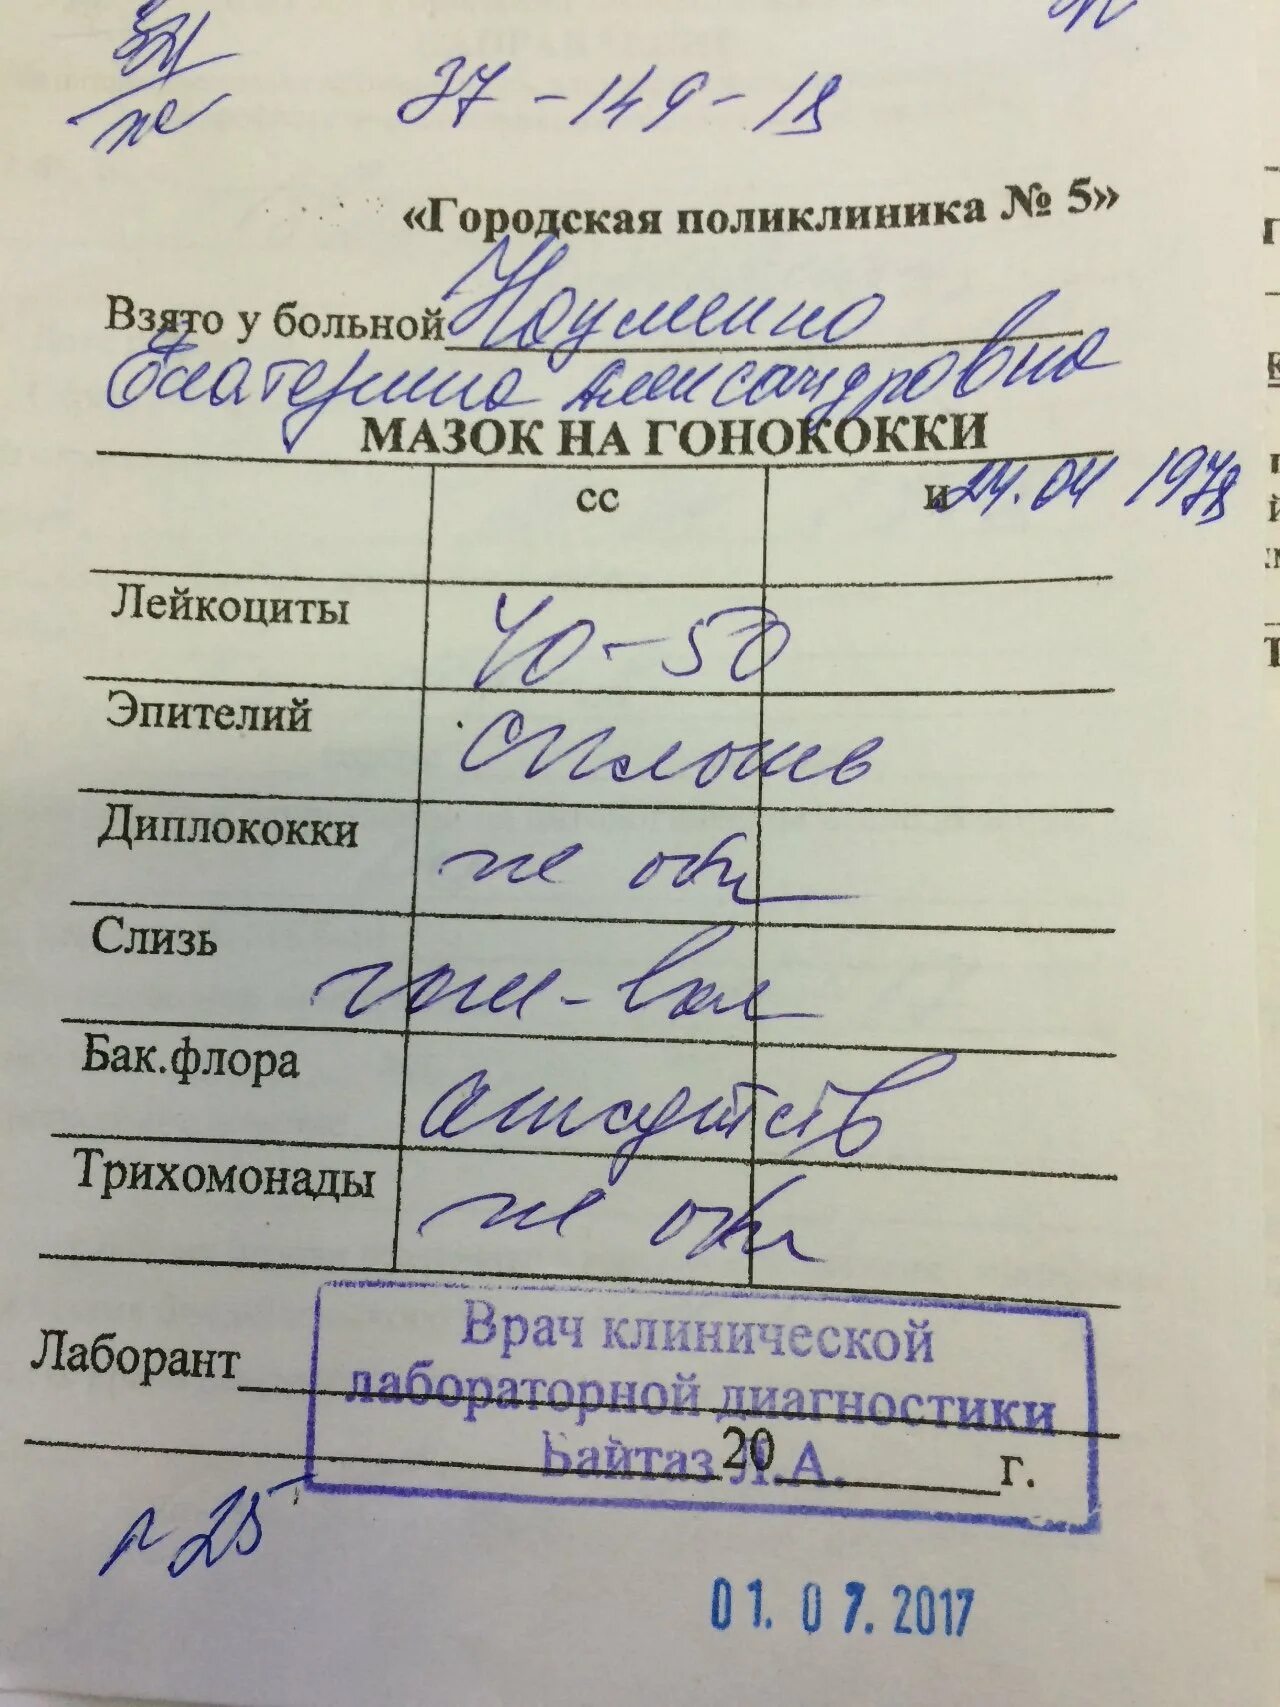 37-149-18
«Городская поликлиника № 5»
Взято у больной Науменко
Екатерина Александровна
МАЗОК НА ГОНОКОККИ
сс и 24.04 1978
Лейкоциты 40-50
Эпителий сплошь
Диплококки не обн
Слизь
Бак.флора отсутств
Трихомонады не обн
Врач клинической
Лаборант
лабораторной диагностики
Байтаз Л.А.
20 г.
25
01.07.2017